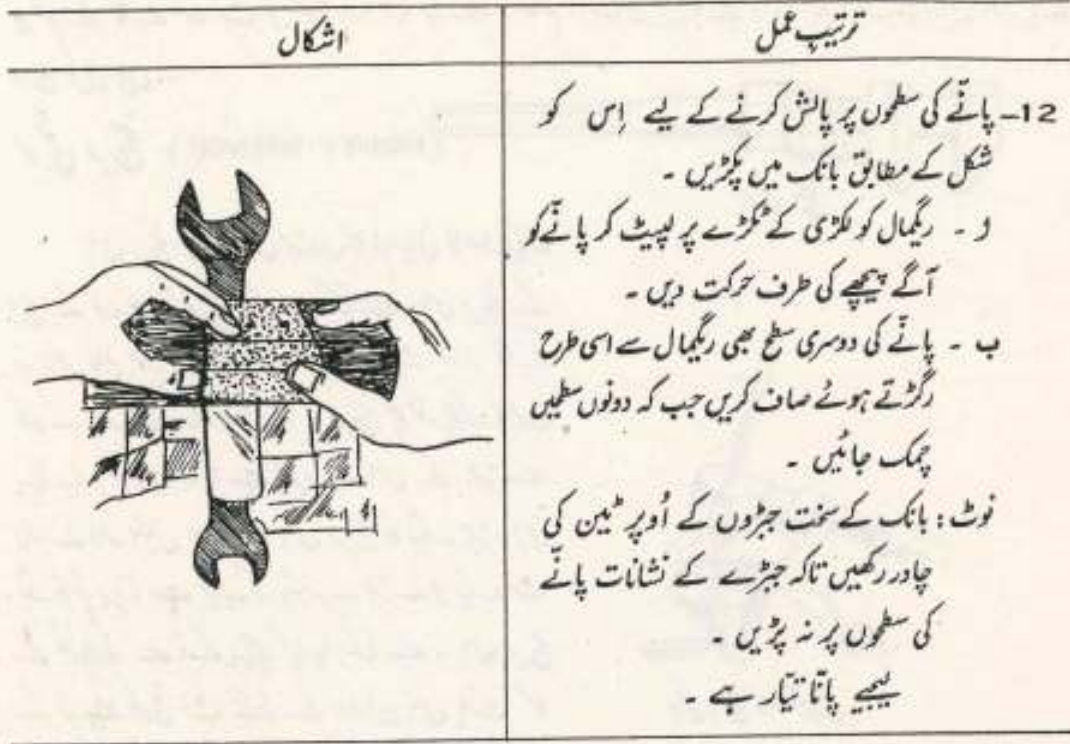 ترتیبِ عمل
اشکال
12۔ پانّے کی سطحوں پر پالش کرنے کے لیے اِس کو
شکل کے مطابق بانک میں پکڑیں ۔
ا ۔ ریگمال کو لکڑی کے ٹکڑے پر لپیٹ کر پانّے کو
آگے پیچھے کی طرف حرکت دیں ۔
ب ۔ پانّے کی دوسری سطح بھی ریگمال سے اسی طرح
رگڑتے ہوئے صاف کریں جب کہ دونوں سطحیں
چمک جائیں ۔
نوٹ : بانک کے سخت جبڑوں کے اُوپر ٹین کی
چادر رکھیں تاکہ جبڑے کے نشانات پانّے
کی سطحوں پر نہ پڑیں ۔
لیجیے پانّا تیّار ہے ۔